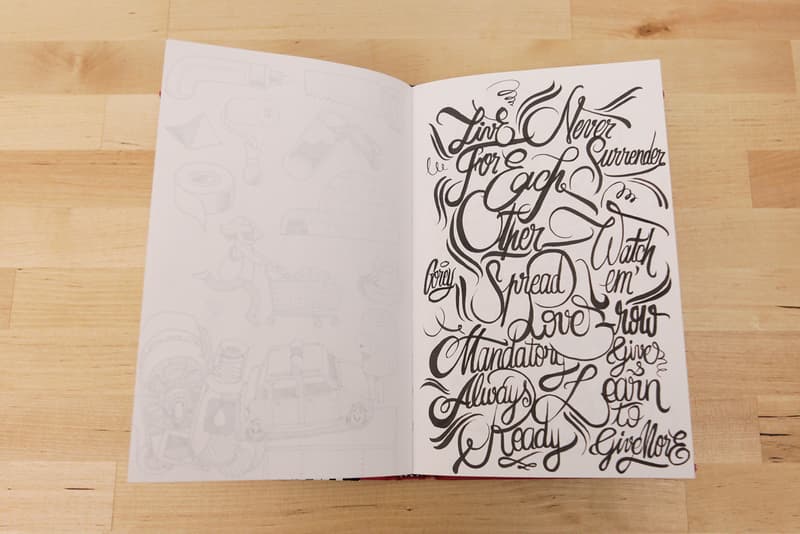 Live
For
Each
Other
Never
Surrender
Watch
em'
Grow
Spread
Love
Mandatory
Always
Ready
Givers
Learn
to
Give More